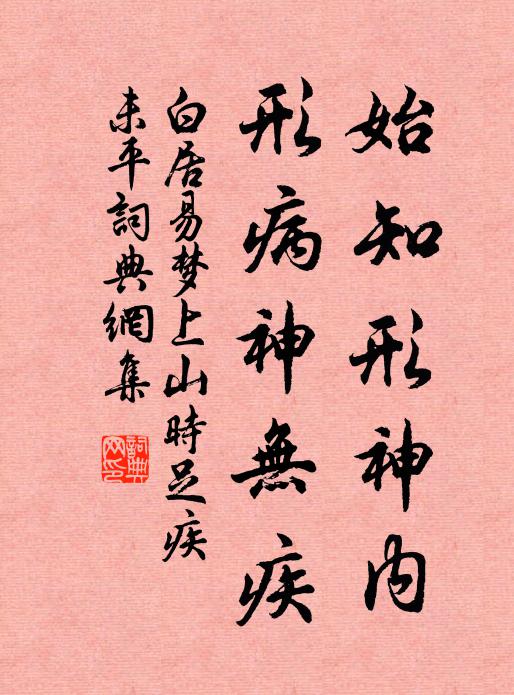 始知形神內
形病神無疾
白居易梦上山時足疾
未平詞典網集
詞典网印